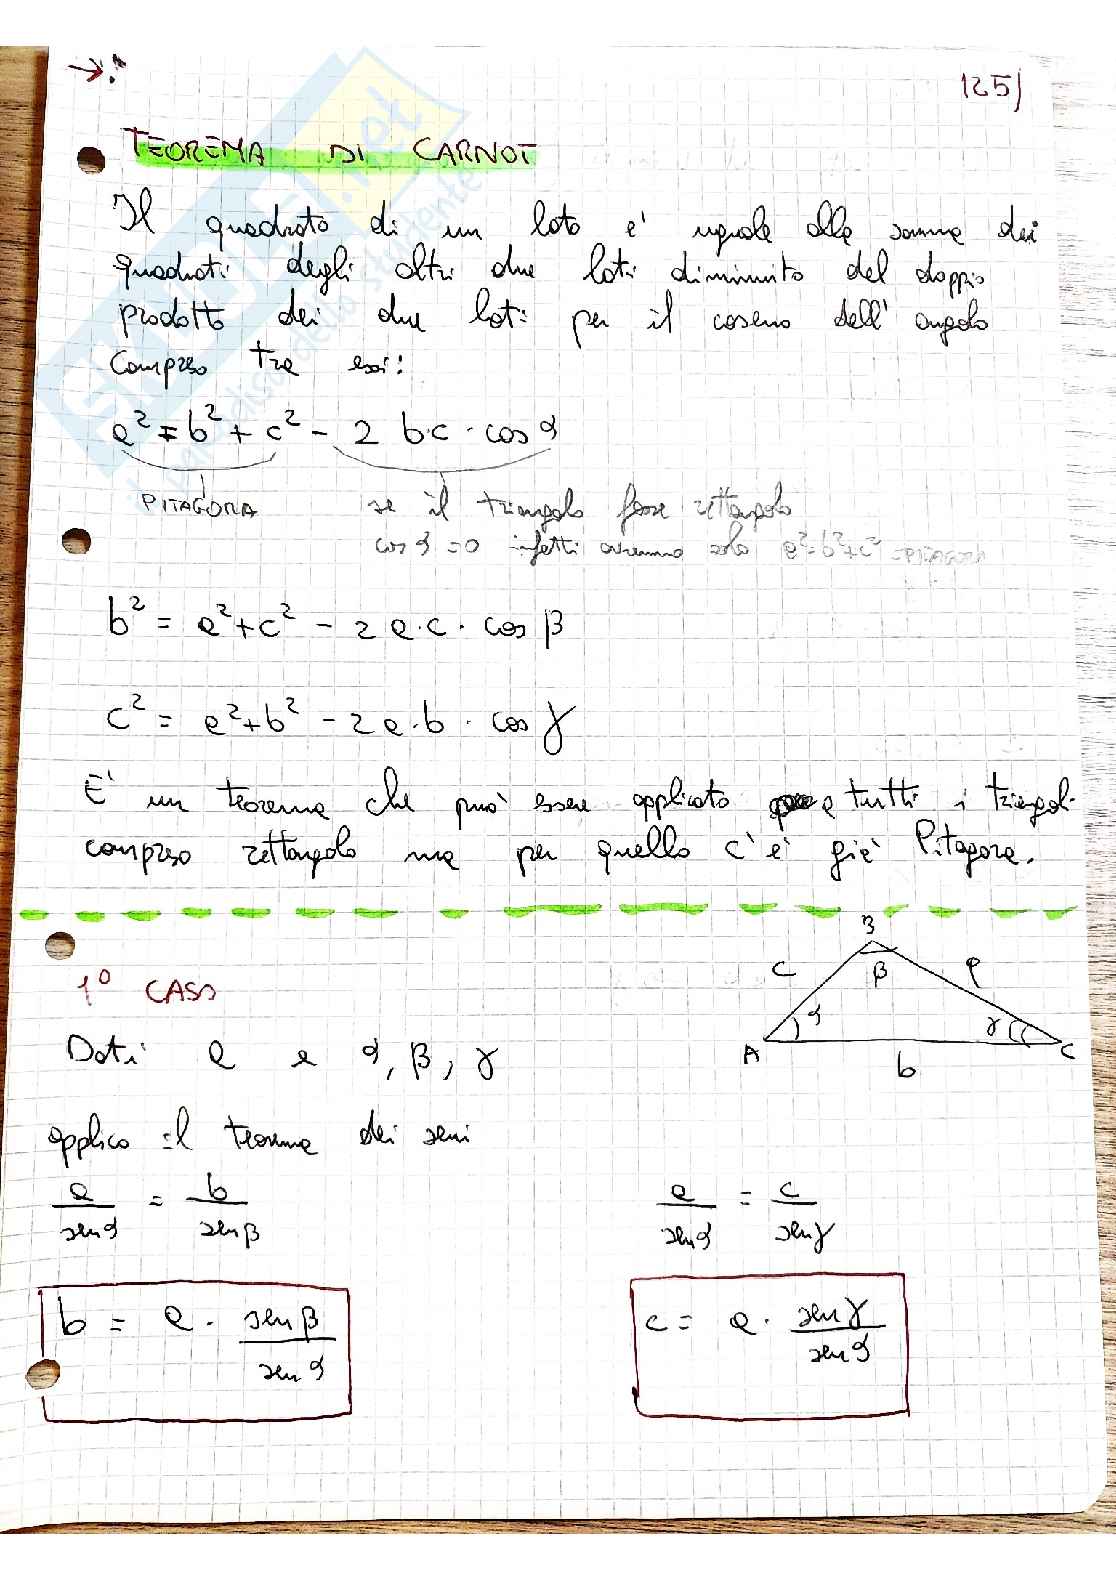 125)
TEOREMA DI CARNOT
Il quadrato di un lato e' uguale alla somma dei
quadrati degli altri due lati diminuito del doppio
prodotto dei due lati per il coseno dell' angolo
compreso tra essi:
a² = b² + c² - 2 b·c · cos α
PITAGORA
se il triangolo fosse rettangolo
cos α = 0 infatti avremmo solo a²=b²+c² = PITAGORA
b² = a² + c² - 2 a·c · cos β
c² = a² + b² - 2 a·b · cos γ
E' un teorema che può essere applicato a tutti i triangoli
compreso rettangolo ma per quello c'è già Pitagora.
1° CASO
B
c β a
α γ
A b C
Dati a e α, β, γ
applico il teorema dei seni
a/sen α = b/sen β
a/sen α = c/sen γ
b = a · sen β/sen α
c = a · sen γ/sen α
skuola.net
il paradiso dello studente